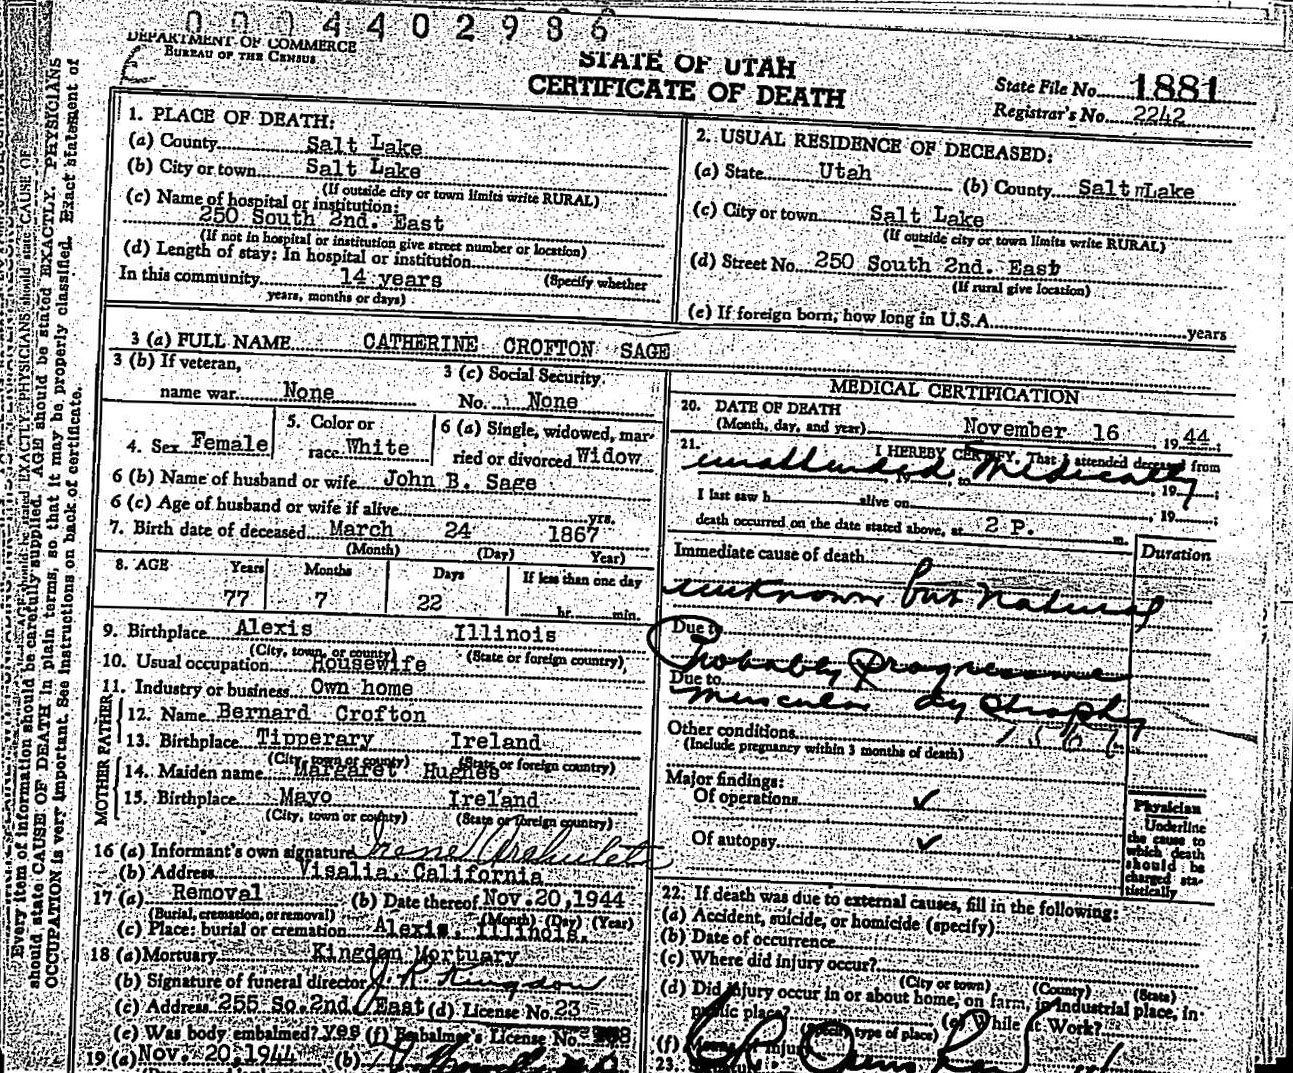 0004402986
DEPARTMENT OF COMMERCE
BUREAU OF THE CENSUS
STATE OF UTAH
CERTIFICATE OF DEATH
State File No. 1881
Registrar's No. 2242
1. PLACE OF DEATH:
(a) County Salt Lake
(b) City or town Salt Lake
(If outside city or town limits write RURAL)
(c) Name of hospital or institution:
250 South 2nd. East
(If not in hospital or institution give street number or location)
(d) Length of stay: In hospital or institution
In this community 14 years (Specify whether
years, months or days)
2. USUAL RESIDENCE OF DECEASED:
(a) State Utah (b) County Salt Lake
(c) City or town Salt Lake
(If outside city or town limits write RURAL)
(d) Street No. 250 South 2nd. East
(If rural give location)
(e) If foreign born, how long in U.S.A. years
3 (a) FULL NAME CATHERINE CROFTON SAGE
3 (b) If veteran,
name war None
3 (c) Social Security
No. None
4. Sex Female
5. Color or
race White
6 (a) Single, widowed, mar-
ried or divorced Widow
6 (b) Name of husband or wife John B. Sage
6 (c) Age of husband or wife if alive yrs.
7. Birth date of deceased March 24 1867
(Month) (Day) Year)
8. AGE Years Months Days If less than one day
77 7 22 hr. min.
9. Birthplace Alexis Illinois
(City, town, or county) (State or foreign country)
10. Usual occupation Housewife
11. Industry or business Own home
FATHER
12. Name Bernard Crofton
13. Birthplace Tipperary Ireland
(City, town or county) (State or foreign country)
MOTHER
14. Maiden name Margaret Hughes
15. Birthplace Mayo Ireland
(City, town or county) (State or foreign country)
16 (a) Informant's own signature Irene Archuleta
(b) Address Visalia, California
17 (a) Removal (b) Date thereof Nov. 20, 1944
(Burial, cremation, or removal) (Month) (Day) (Year)
(c) Place: burial or cremation Alexis, Illinois.
18 (a) Mortuary Kingdon Mortuary
(b) Signature of funeral director J. R. Kingdon
(c) Address 255 So. 2nd East (d) License No. 23
(e) Was body embalmed? yes (f) Embalmer's License No.
19 (a) Nov. 20, 1944 (b)
MEDICAL CERTIFICATION
20. DATE OF DEATH
(Month, day, and year) November 16 1944
21. I HEREBY CERTIFY, That I attended deceased from
unattended, 19 to Medically, 19
I last saw h alive on , 19
death occurred on the date stated above, at 2 P. m.
Immediate cause of death Duration
unknown but natural
Due to
Probably Progressive
Due to
Muscular dystrophy
Other conditions
(Include pregnancy within 3 months of death)
Major findings:
Of operations ✓
Of autopsy ✓
Physician
Underline
the cause to
which death
should be
charged sta-
tistically
22. If death was due to external causes, fill in the following:
(a) Accident, suicide, or homicide (specify)
(b) Date of occurrence
(c) Where did injury occur?
(City or town) (County) (State)
(d) Did injury occur in or about home, on farm, in industrial place, in
public place? (Specify type of place) (e) While at Work?
(f)
23.
Every item of information should be carefully supplied. AGE should be stated EXACTLY. PHYSICIANS
should state CAUSE OF DEATH in plain terms, so that it may be properly classified. Exact statement of
OCCUPATION is very important. See instructions on back of certificate.